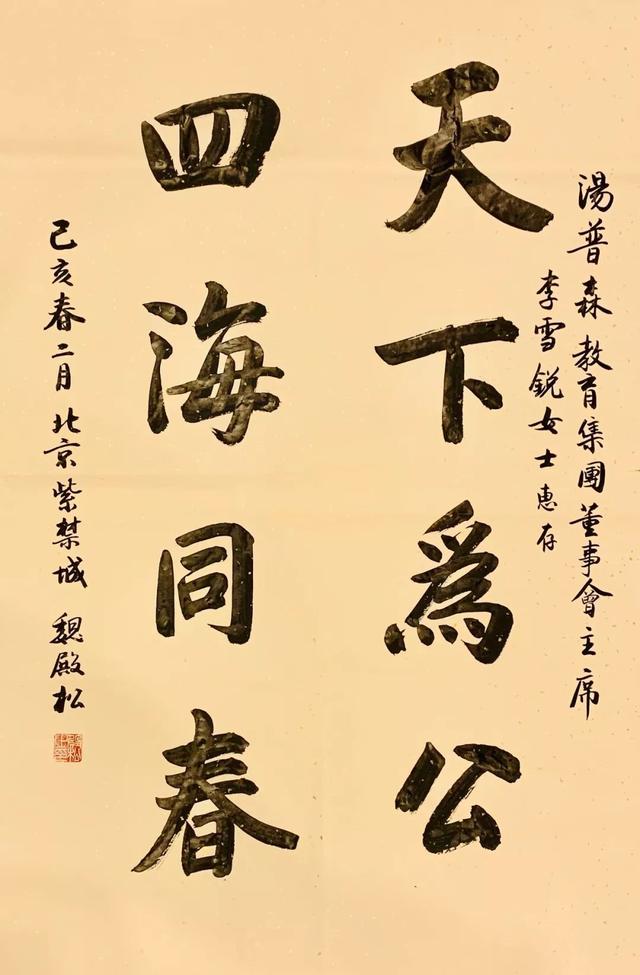 湯普森教育集團董事會主席
李雪銳女士惠存
天下為公
四海同春
己亥春二月北京紫禁城 魏殿松